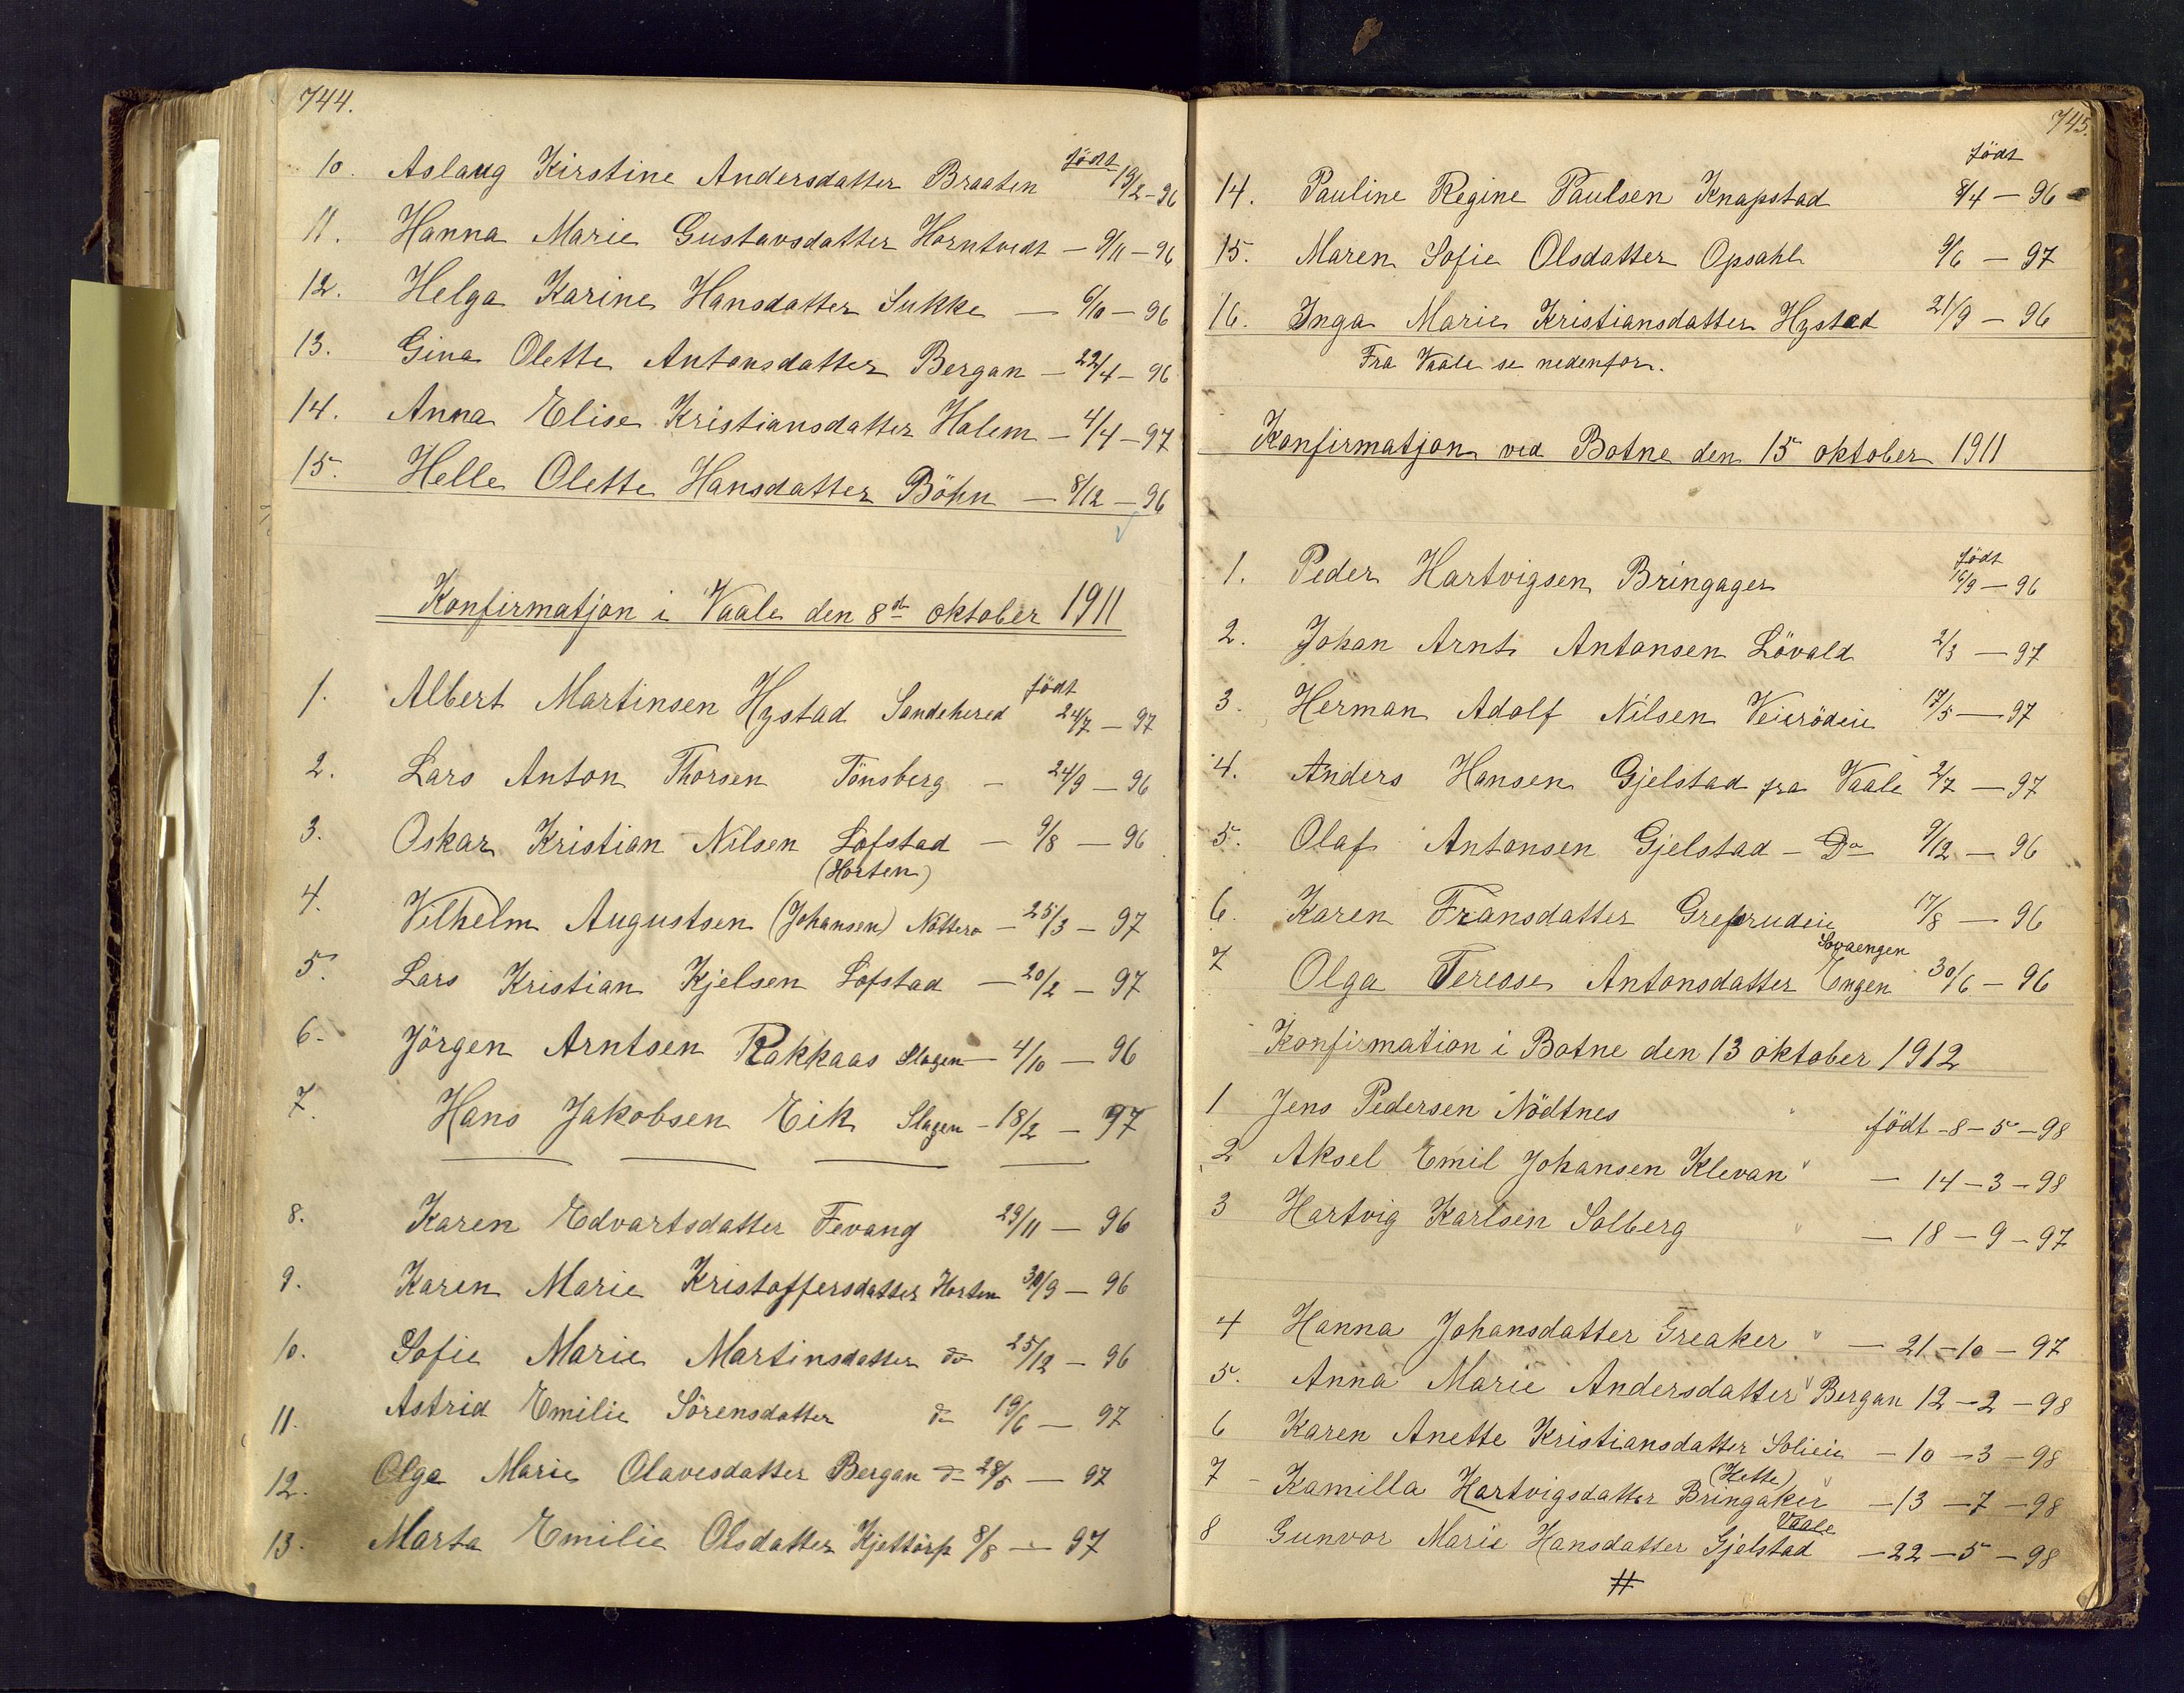 744.
10. Aslaug Kirstine Andersdatter Braaten født 19/2 - 96
11. Hanna Marie Gustavsdatter Horntvedt - 9/11 - 96
12. Helga Karine Hansdatter Sukke - 6/10 - 96
13. Gina Olette Antonsdatter Bergan - 22/4 - 96
14. Anna Elise Kristiansdatter Holem - 4/4 - 97
15. Helle Olette Hansdatter Böhn - 8/12 - 96
Konfirmatjon i Vaale den 8de oktober 1911
1. Albert Martinsen Hystad Sandehered födt 24/7 - 97
2. Lars Anton Thorsen Tönsberg - 24/9 - 96
3. Oskar Kristian Nilsen Lofstad - 9/8 - 96
(Horten)
4. Vilhelm Augustsen (Johansen) Nöttero - 25/3 - 97
5. Lars Kristian Kjelsen Lofstad - 20/2 - 97
6. Jörgen Arntsen Rakkaas Slagen - 4/10 - 96
7. Hans Jakobsen Eik Slagen - 18/2 - 97
8. Karen Edvartsdatter Fevang 29/11 - 96
9. Karen Marie Kristoffersdatter Horten 30/9 - 96
10. Sofie Marie Martinsdatter do 25/12 - 96
11. Astrid Emilie Sörensdatter do 19/6 - 97
12. Olga Marie Olavesdatter Bergan do 28/5 - 97
13. Marta Emilie Olsdatter Kjettörp 8/8 - 97
745.
födt
14. Pauline Regine Paulsen Knapstad 8/4 - 96
15. Maren Sofie Olsdatter Opsahl 9/6 - 97
16. Inga Marie Kristiansdatter Hystad 21/9 - 96
Fra Vaale se nedenfor.
Konfirmatjon ved Botne den 15 oktober 1911
födt
1. Peder Hartvigsen Bringager 16/9 - 96
2. Johan Arnt Antonsen Lövald 2/3 - 97
3. Herman Adolf Nilsen Veierödeie 17/5 - 97
4. Anders Hansen Gjelstad fra Vaale 2/7 - 97
5. Olaf Antonsen Gjelstad - Do 9/12 - 96
6. Karen Fransdatter Greprudeie 17/8 - 96
Sovaengen
7 Olga Teresse Antonsdatter Engen 30/6 - 96
Konfirmation i Botne den 13 oktober 1912
1 Jens Pedersen Nödtnes födt - 8 - 5 - 98
2 Aksel Emil Johansen Klevan - 14 - 3 - 98
3 Hartvig Karlsen Solberg - 18 - 9 - 97
4 Hanna Johansdatter Greaker - 21 - 10 - 97
5. Anna Marie Andersdatter Bergan 12 - 2 - 98
6 Karen Anette Kristiansdatter Solieie - 10 - 3 - 98
(Hette)
7 - Kamilla Hartvigsdatter Bringaker - 13 - 7 - 98
Vaale
8 Gunvor Marie Hansdatter Gjelstad - 22 - 5 - 98